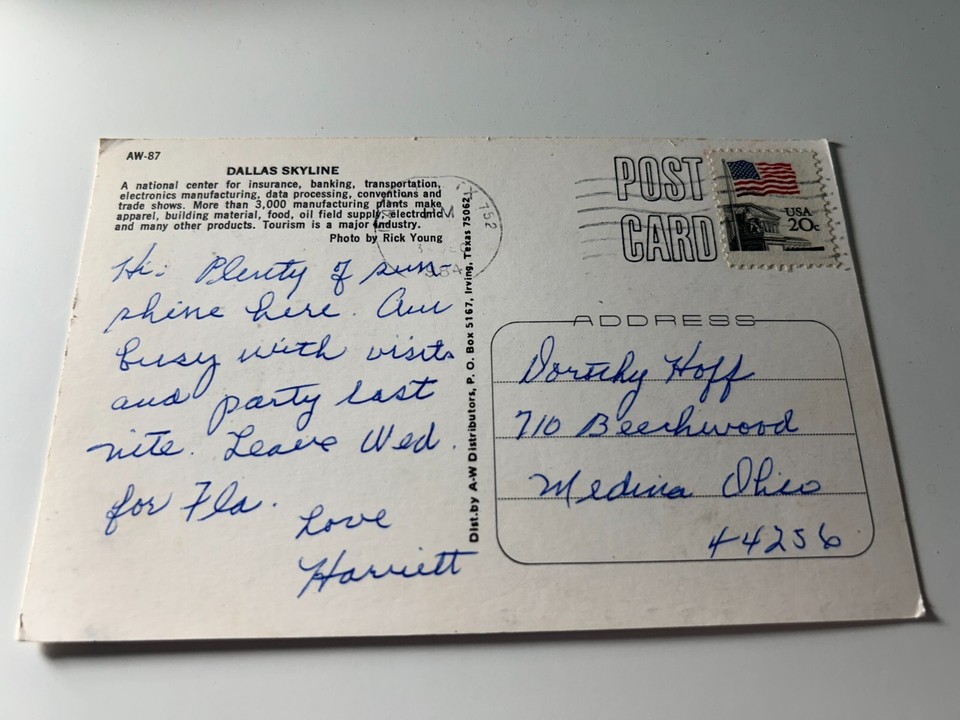 AW-87
DALLAS SKYLINE
A national center for insurance, banking, transportation,
electronics manufacturing, data processing, conventions and
trade shows. More than 3,000 manufacturing plants make
apparel, building material, food, oil field supply, electronic
and many other products. Tourism is a major industry.
Photo by Rick Young
Hi: Plenty of sun-
shine here. Am
busy with visits
and party last
nite. Leave Wed.
for Fla.
Love
Harriett
Dist. by A-W Distributors, P. O. Box 5167, Irving, Texas 75062
PM
752
1984
POST
CARD
USA
20c
ADDRESS
Dorothy Hoff
710 Beechwood
Medina Ohio
44256